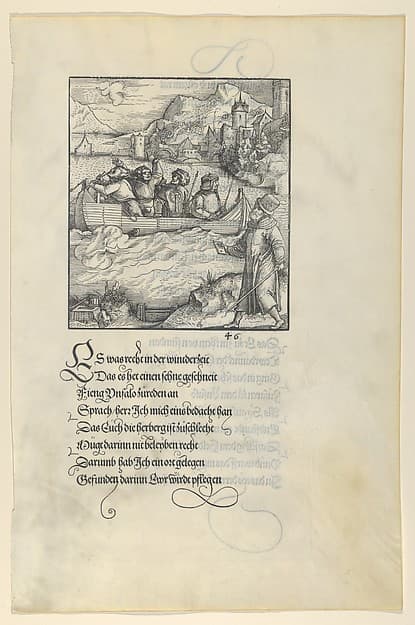 46
ES was recht in der winnderzeit
Das es het einen schne geschneit
Fieng Vnfalo fürden an
Sprach herr Ich mich eins bedacht han
Das Euch die herberg ist zuschlecht
Mügt darinn nit beleyben recht
Darumb hab Ich ein ort gelegen
Gefunden darinn Ewr wirdt pflegen